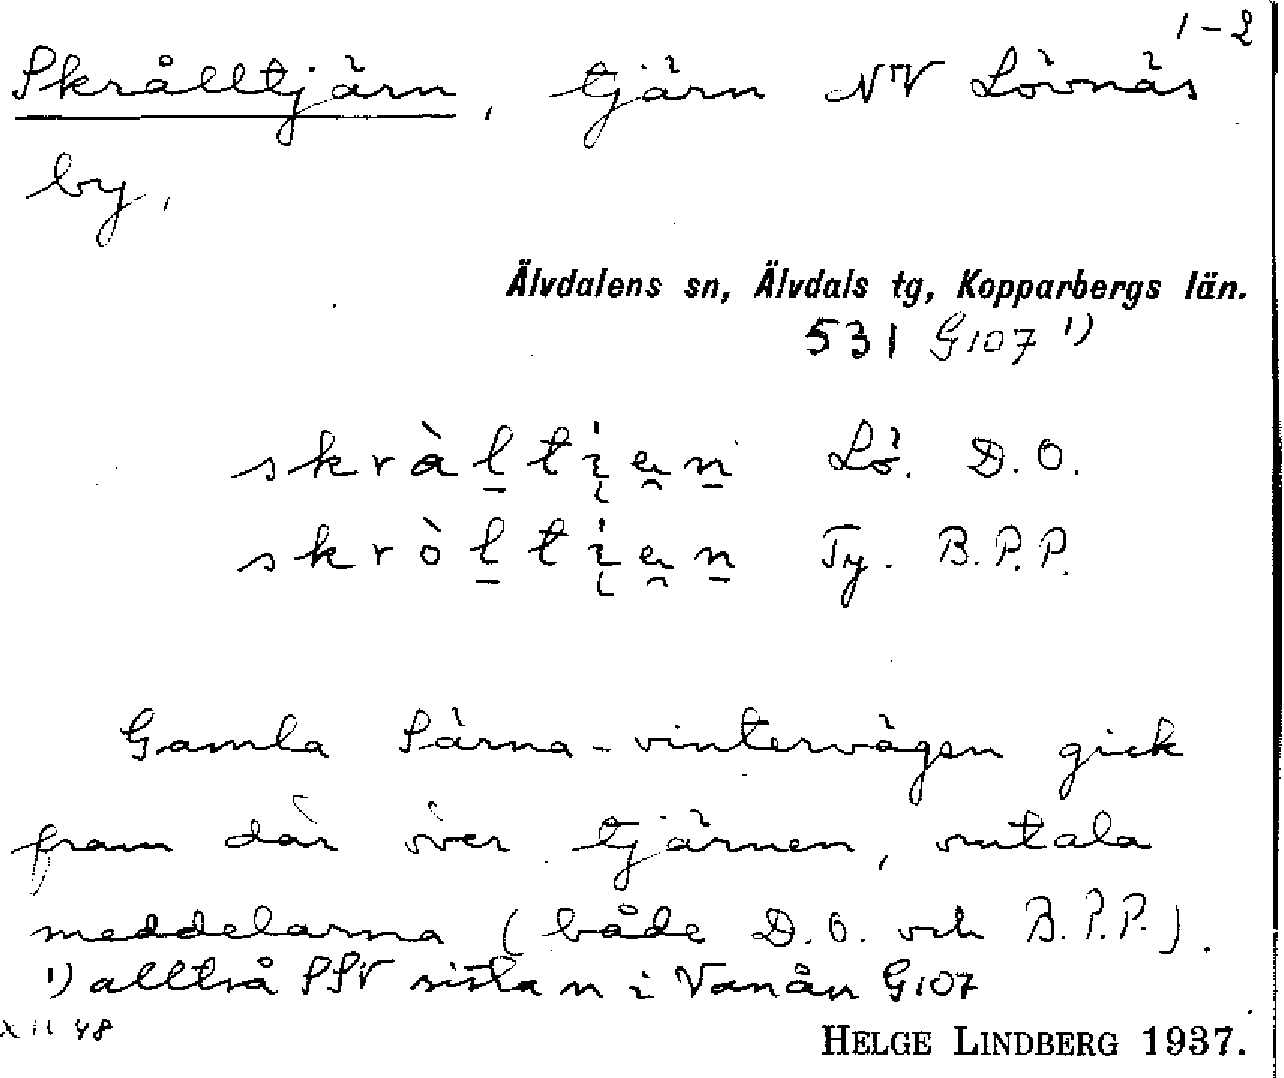 1-2
Skrålltjärn, tjärn NV Lövnäs
by,
Älvdalens sn, Älvdals tg, Kopparbergs län.
531 G107 ¹)
skràl̠ti̯en̠ Lö. D.O.
skròl̠ti̯en̠ Ty. B.P.P.
Gamla Särna-vintervägen gick
fram där över tjärnen, omtala
meddelarna (både D.O. och B.P.P.).
¹) alltså SSV sista n i Vanån G107
XII 48
HELGE LINDBERG 1937.